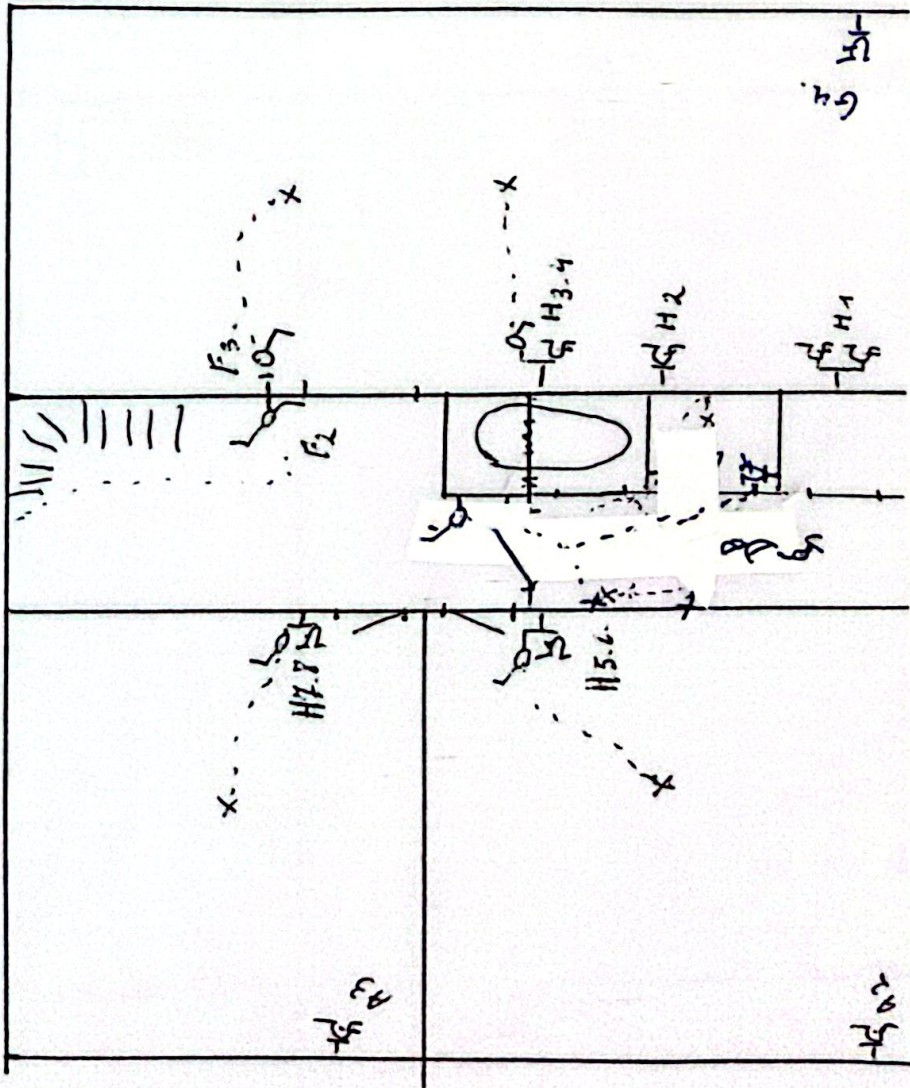 G4.
F3.
H3.4
H2
H1
F2
H7.8
H5.6.
A3
A2